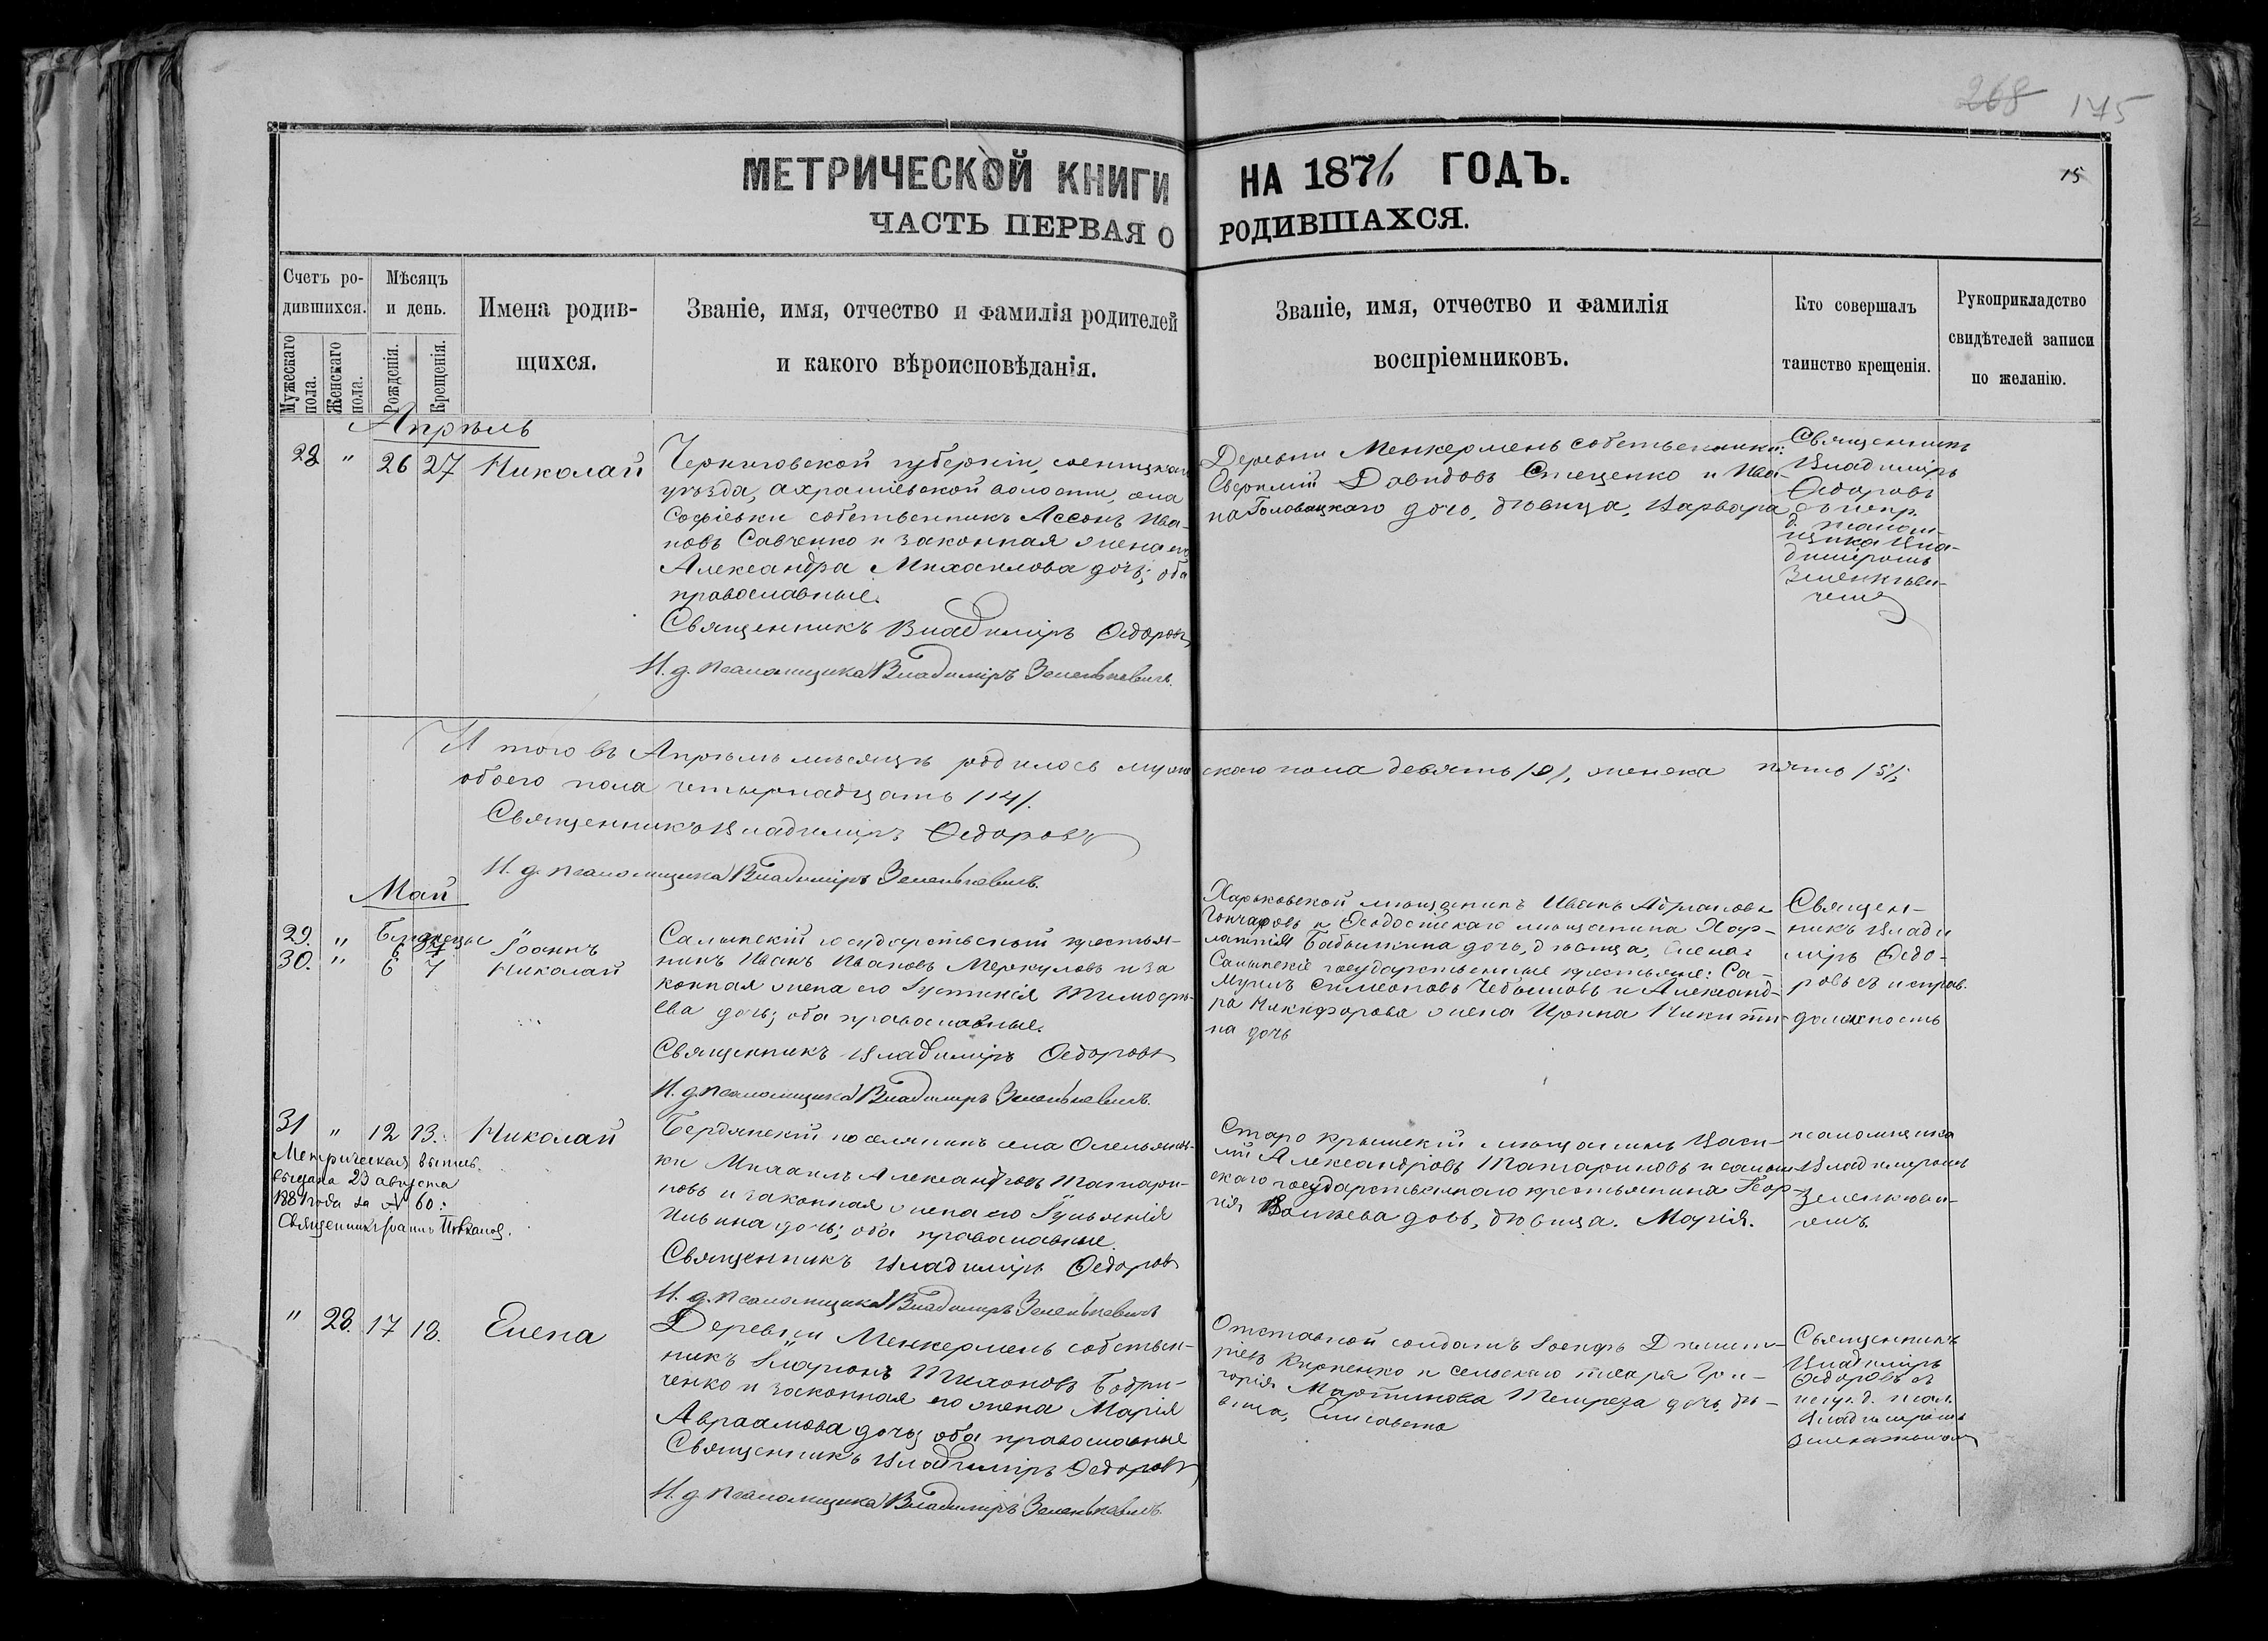 268 175
МЕТРИЧЕСКОЙ КНИГИ НА 1876 ГОДЪ.
15
ЧАСТЬ ПЕРВАЯ О РОДИВШАХСЯ.
Счетъ ро-
дившихся.
Мужескаго пола.
Женскаго пола.
Мѣсяцъ
и день.
Рожденія.
Крещенія.
Имена родив-
щихся.
Званіе, имя, отчество и фамилія родителей
и какого вѣроисповѣданія.
Званіе, имя, отчество и фамилія
воспріемниковъ.
Кто совершалъ
таинство крещенія.
Рукоприкладство
свидѣтелей записи
по желанію.
Апрѣль
28 " 26 27 Николай
Черниговской губерніи,
уѣзда, волости, села
Софіевки собственникъ Ива-
новъ Савченко и законная жена его
Александра Михаилова дочь; оба
православные.
Священникъ Владиміръ Ѳедоровъ
И. д. псаломщика Владиміръ Зеленькевичъ.
Деревни Менкермень собственники:
Давидовъ Стеценко и Ива-
на Головацкаго дочь, дѣвица, Варвара
Священникъ
Владиміръ
Ѳедоровъ
съ испр.
д. псалом-
щика Вла-
диміромъ
Зеленкеви-
чемъ
Итого въ Апрѣлѣ мѣсяцѣ родилось мужескаго пола девять /9/, женска пять /5/;
обоего пола четырнадцать /14/.
Священникъ Владиміръ Ѳедоровъ
И. д. псаломщика Владиміръ Зеленькевичъ.
Май
Близнецы
29. " 6 7 Іоаннъ
30. " 6 7 Николай
Салынскій государственный крестья-
нинъ Иванъ Ивановъ Меркуловъ и за
конная жена его Іустинія Тимоѳѣ-
ева дочь; оба православные.
Священникъ Владиміръ Ѳедоровъ
И. д. псаломщика Владиміръ Зеленькевичъ.
Харьковской мѣщанинъ Иванъ Абрамовъ
Гончаровъ и Ѳеодосійскаго мѣщанина Хар-
лампія Бабышкина дочь, дѣвица, Елена:
Салынскіе государственные крестьяне: Са-
муилъ Симеоновъ и Александ-
ра Никифорова жена Ирина Никити-
на дочь
Священ-
никъ Влади
міръ Ѳедо-
ровъ съ исправ.
должность
31 " 12 13. Николай
Метрическая выпись
выдана 23 августа
1881 года за № 60:
Священникъ Іоаннъ
Бердянскій поселянинъ села
ки Михаилъ Александровъ Татари-
новъ и законная жена его Іульянія
Ильина дочь; оба православные.
Священникъ Владиміръ Ѳедоровъ
И. д. псаломщика Владиміръ Зеленькевичъ
Старо Крымскій мѣщанинъ Васи-
лій Александровъ Татариновъ и салын-
скаго государственнаго крестьянина Геор-
гія дочь, дѣвица. Марія.
псаломщика
Владиміромъ
Зеленкеви-
чемъ.
" 28. 17 18. Елена
Деревни Менкермень собствен-
никъ Иларіонъ Тихоновъ Бобри-
ченко и законная его жена Марія
Авраамова дочь; оба православные
Священникъ Владиміръ Ѳедоровъ
И. д. псаломщика Владиміръ Зеленькевичъ.
Отставной солдатъ Іосифъ Димит-
ріевъ Кирпенко и сельскаго писаря Гри-
горія Мартинова дочь, дѣ-
вица, Елисавета
Священникъ
Владиміръ
Ѳедоровъ съ
испр. д. псал.
Владиміромъ